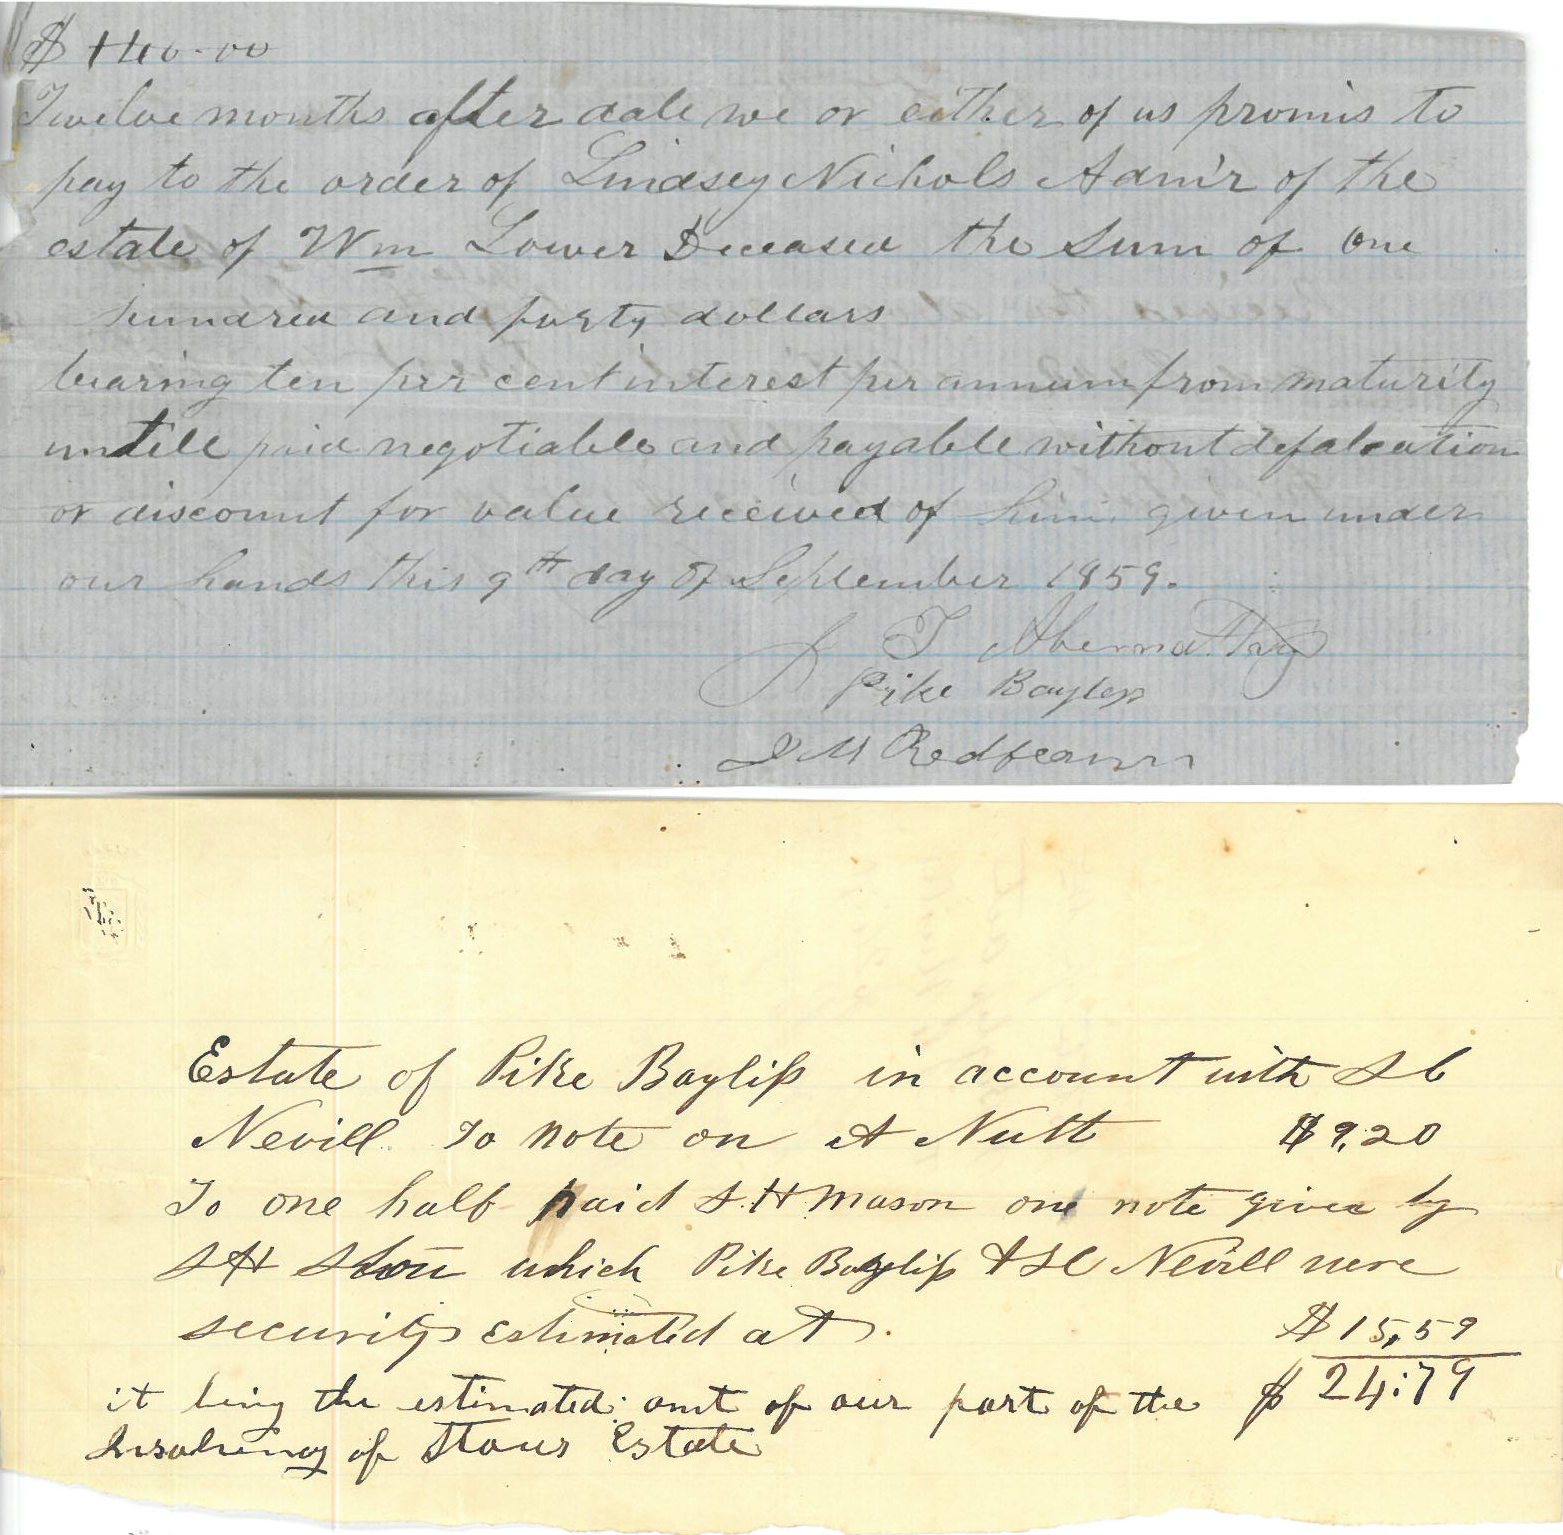 $ 140.00
Twelve months after date we or either of us promis to
pay to the order of Lindsey Nichols Adm'r of the
estate of Wm Lower Deceased the Sum of One
hundred and forty dollars
bearing ten per cent interest per annum from maturity
untill paid negotiable and payable without defalcation
or discount for value received of him given under
our hands this 9th day of September 1859.
J T Abernathy
Pike Bayless
J M Redfearn
Estate of Pike Bayliss in account with S C
Nevill To note on A Nutt $9.20
To one half paid S. H Mason one note given by
S H Stou which Pike Bayliss & S C Nevill were
security estimated at $15,59
it being the estimated amt of our part of the $ 24.79
Insolvency of Stous Estate